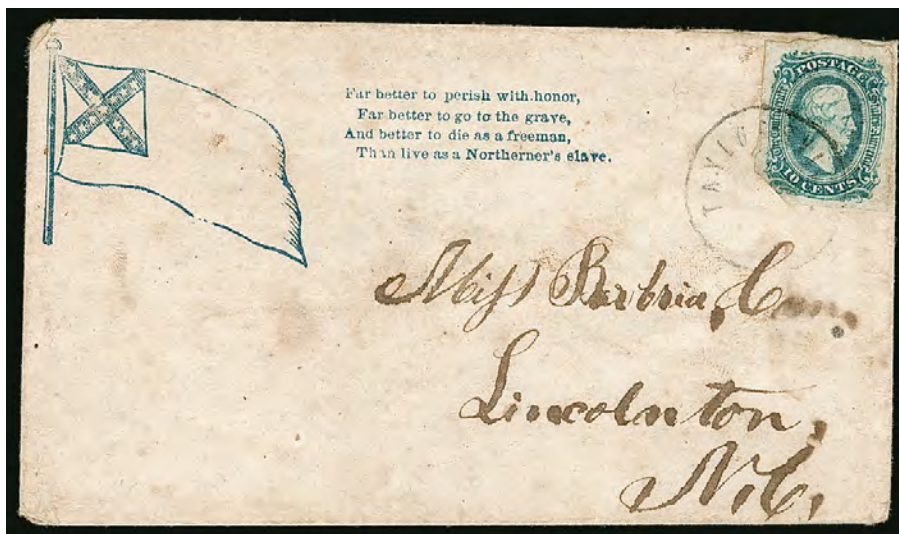 Far better to perish with honor,
Far better to go to the grave,
And better to die as a freeman,
Than live as a Northerner's slave.
POSTAGE
10 CENTS
Miss Barbria
Lincolnton,
N.C.